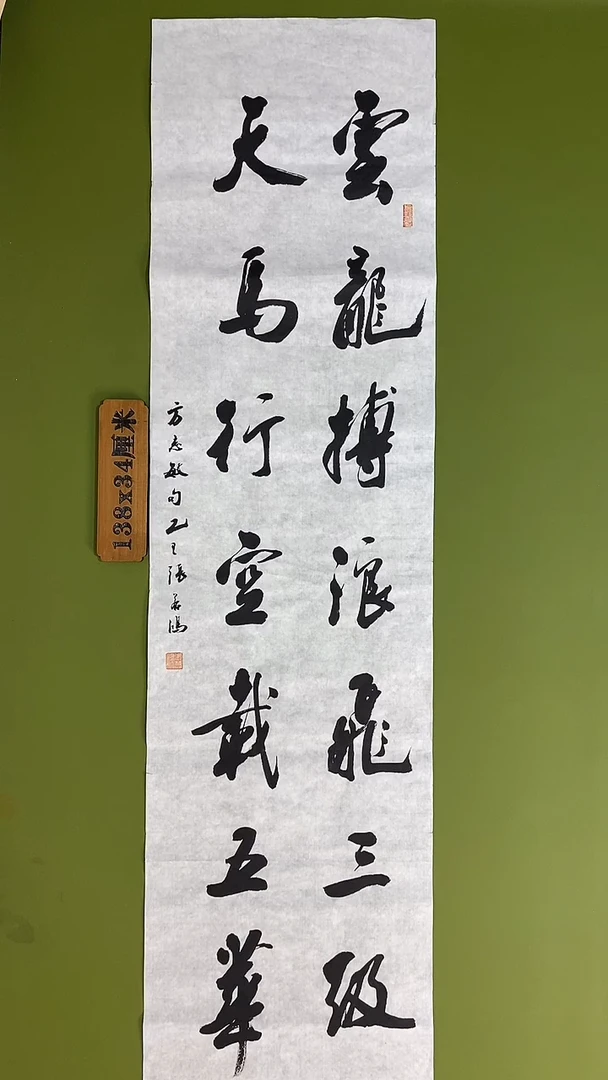 雲龍搏浪飛三級
天馬行空載五華
方志敏句乙巳張若鴻
138x34厘米